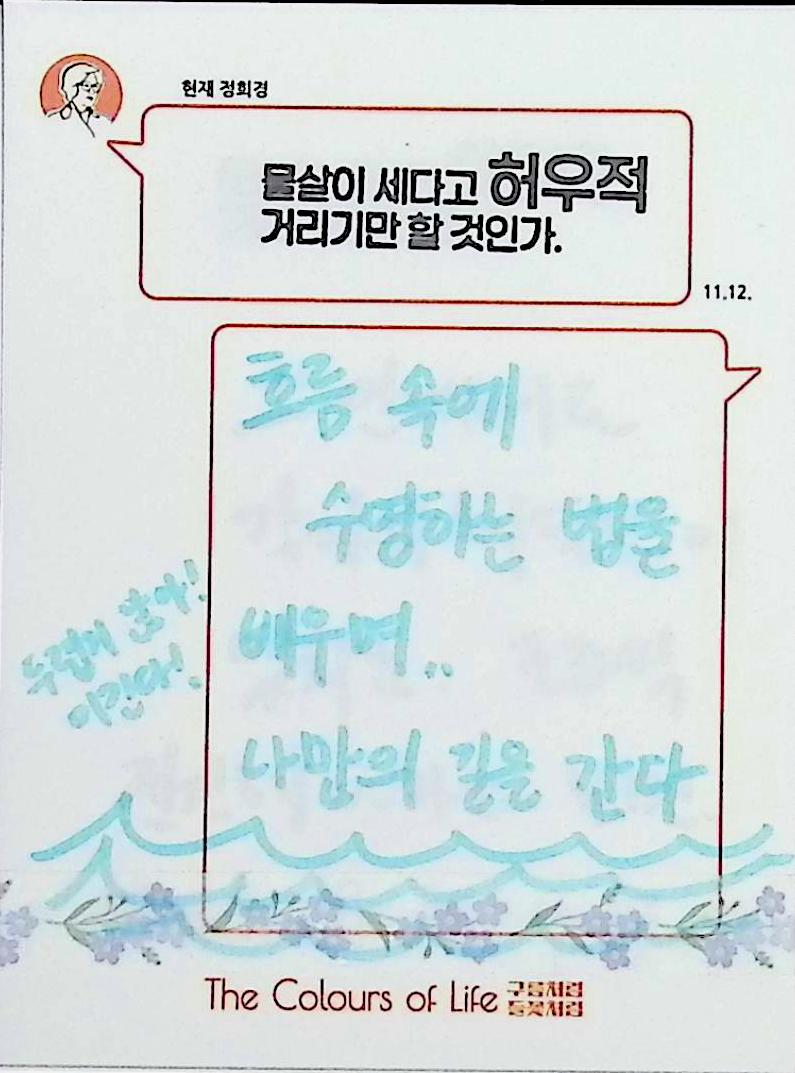 현재 정희경
물살이 세다고 허우적
거리기만 할 것인가.
11.12.
흐름 속에
수영하는 법을
배우며..
나만의 길을 간다
두렵지 않아!
이긴다!
The Colours of Life 구름처럼
들꽃처럼